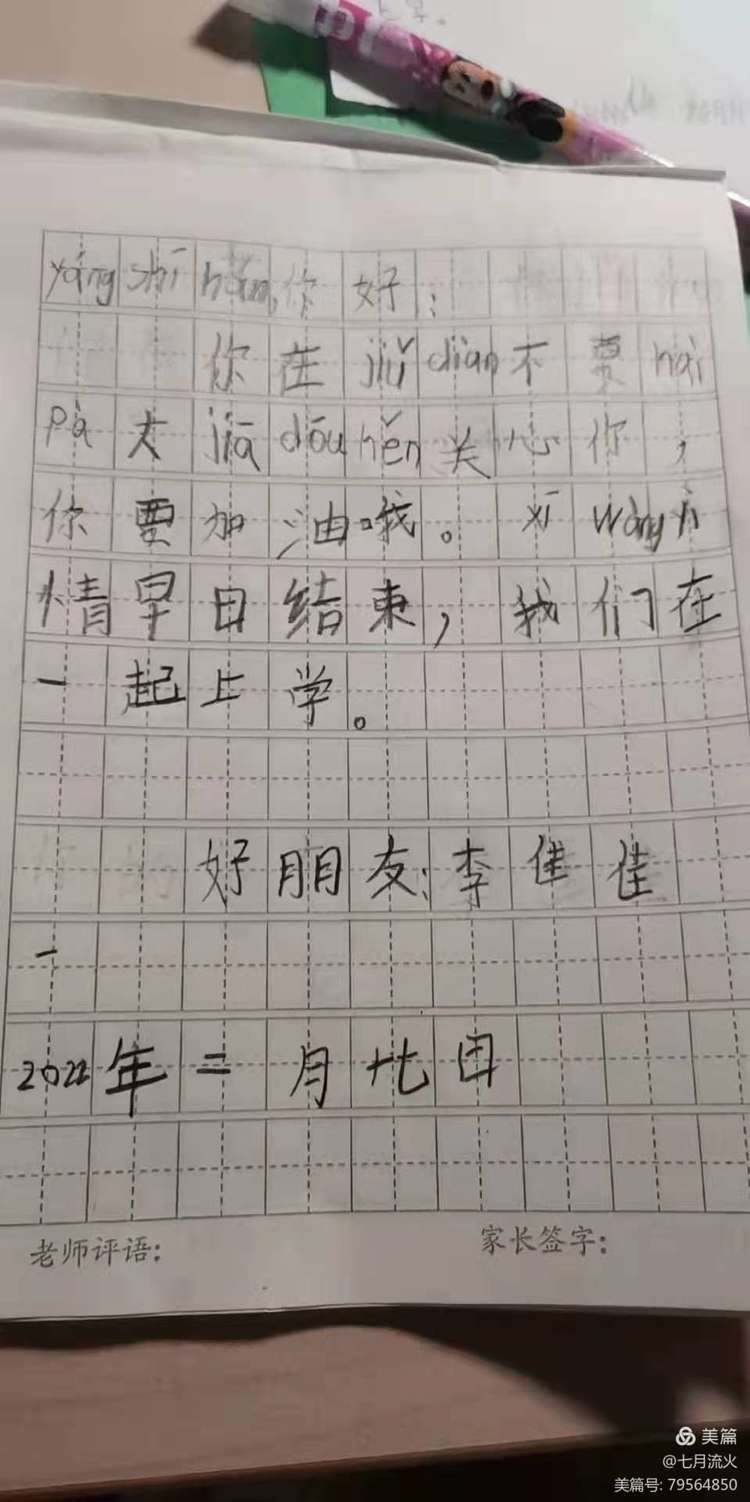 yáng shī hán,你好:
你在jiǔ dian不要hài
pà大jiā dōu hěn关心你,
你要加油哦。xī wàng yì
情早日结束,我们在
一起上学。
好朋友:李佳佳
一
2022年二月十七日
老师评语: 家长签字:
美篇
@七月流火
美篇号: 79564850